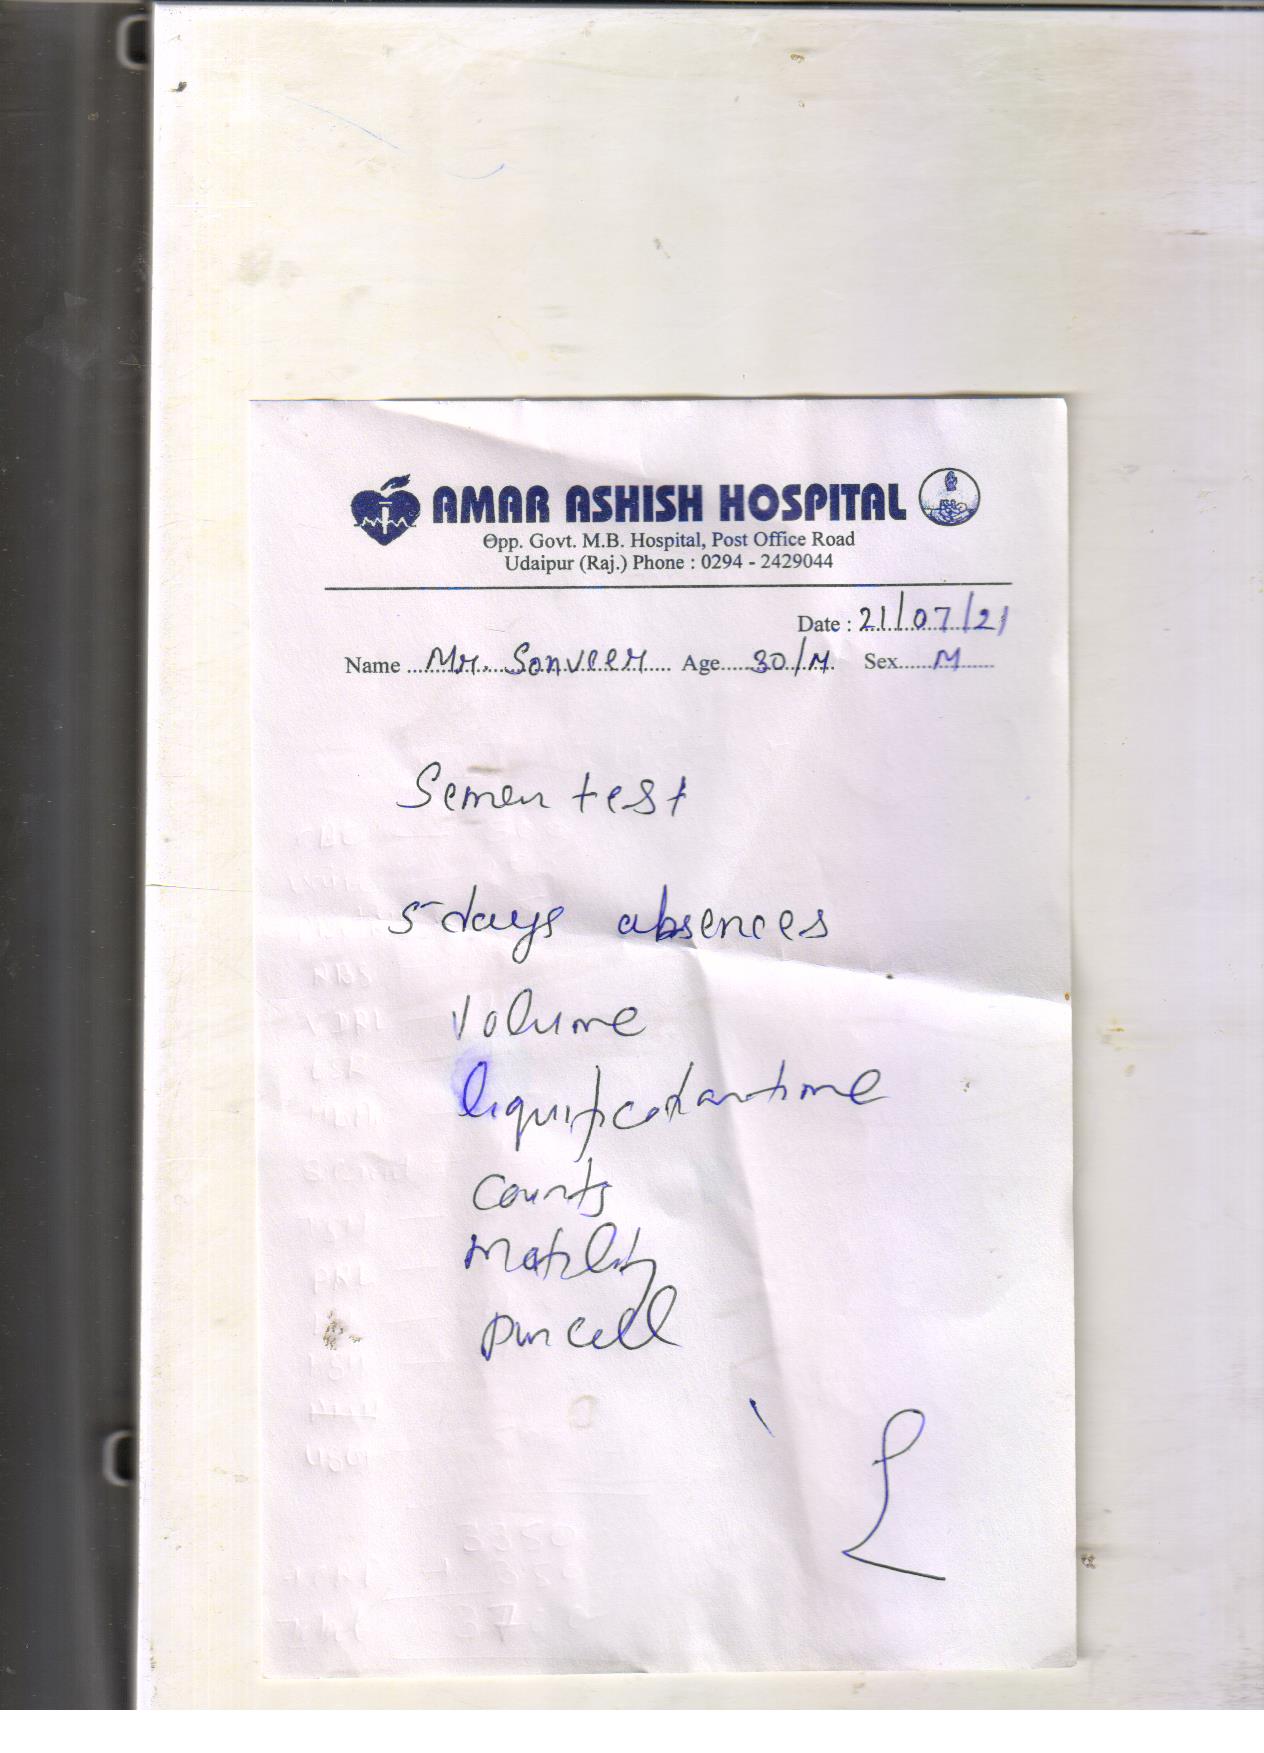 AMAR ASHISH HOSPITAL
Opp. Govt. M.B. Hospital, Post Office Road
Udaipur (Raj.) Phone : 0294 - 2429044
Date : 21/07/21
Name Mr. Sonveer Age 30/M Sex M
Semen test
5 days absences
Volume
liquification time
Counts
Motility
Pus cell